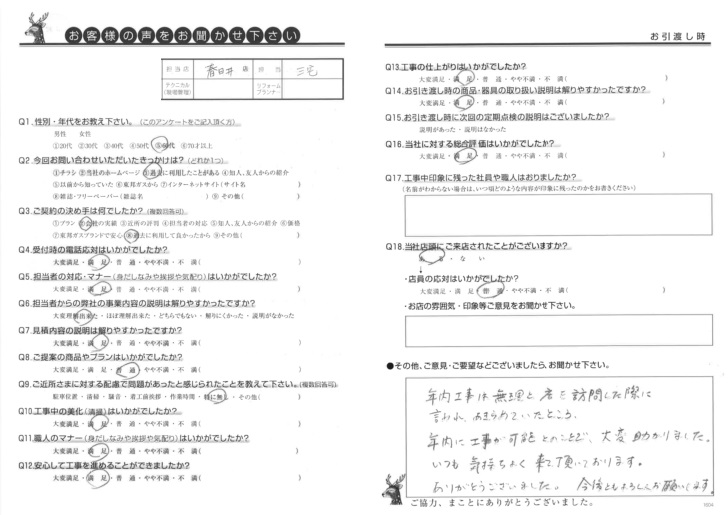 お客様の声をお聞かせ下さい
担当店 春日井 店 担当 三宅
テクニカル(現場管理) リフォームプランナー
Q1.性別・年代をお教え下さい。(このアンケートをご記入頂く方)
男性 女性
①20代 ②30代 ③40代 ④50代 ⑤60代 ⑥70才以上
Q2.今回お問い合わせいただいたきっかけは?(どれか1つ)
①チラシ ②当社のホームページ ③過去に利用したことがある ④知人、友人からの紹介
⑤以前から知っていた ⑥東邦ガスから ⑦インターネットサイト(サイト名 )
⑧雑誌・フリーペーパー(雑誌名 ) ⑨その他( )
Q3.ご契約の決め手は何でしたか?(複数回答可)
①プラン ②会社の実績 ③近所の評判 ④担当者の対応 ⑤知人、友人からの紹介 ⑥価格
⑦東邦ガスブランドで安心 ⑧過去に利用して良かったから ⑨その他( )
Q4.受付時の電話応対はいかがでしたか?
大変満足・満 足・普 通・やや不満・不 満( )
Q5.担当者の対応・マナー(身だしなみや挨拶や気配り)はいかがでしたか?
大変満足・満 足・普 通・やや不満・不 満( )
Q6.担当者からの弊社の事業内容の説明は解りやすかったですか?
大変理解出来た・ほぼ理解出来た・どちらでもない・解りにくかった・説明がなかった
Q7.見積内容の説明は解りやすかったですか?
大変満足・満 足・普 通・やや不満・不 満( )
Q8.ご提案の商品やプランはいかがでしたか?
大変満足・満 足・普 通・やや不満・不 満( )
Q9.ご近所さまに対する配慮で問題があったと感じられたことを教えて下さい。(複数回答可)
駐車位置・清掃・騒音・着工前挨拶・作業時間・特に無し・その他( )
Q10.工事中の美化(清掃)はいかがでしたか?
大変満足・満 足・普 通・やや不満・不 満( )
Q11.職人のマナー(身だしなみや挨拶や気配り)はいかがでしたか?
大変満足・満 足・普 通・やや不満・不 満( )
Q12.安心して工事を進めることができましたか?
大変満足・満 足・普 通・やや不満・不 満( )
お引渡し時
Q13.工事の仕上がりはいかがでしたか?
大変満足・満 足・普 通・やや不満・不 満( )
Q14.お引き渡し時の商品・器具の取り扱い説明は解りやすかったですか?
大変満足・満 足・普 通・やや不満・不 満( )
Q15.お引き渡し時に次回の定期点検の説明はございましたか?
説明があった・説明はなかった
Q16.当社に対する総合評価はいかがでしたか?
大変満足・満 足・普 通・やや不満・不 満( )
Q17.工事中印象に残った社員や職人はおりましたか?
(名前がわからない場合は、いつ頃どのような内容が印象に残ったのかをお書きください)
Q18.当社店頭にご来店されたことがございますか?
る・な い
・店員の応対はいかがでしたか?
大変満足・満 足・普 通・やや不満・不 満( )
・お店の雰囲気・印象等ご意見をお聞かせ下さい。
●その他、ご意見・ご要望などございましたら、お聞かせ下さい。
年内工事は無理と店を訪問した際に
言われ、あきらめていたところ、
年内に工事が可能とのことで、大変助かりました。
いつも気持ちよく来て頂いております。
ありがとうございました。 今後ともよろしくお願いします。
ご協力、まことにありがとうございました。